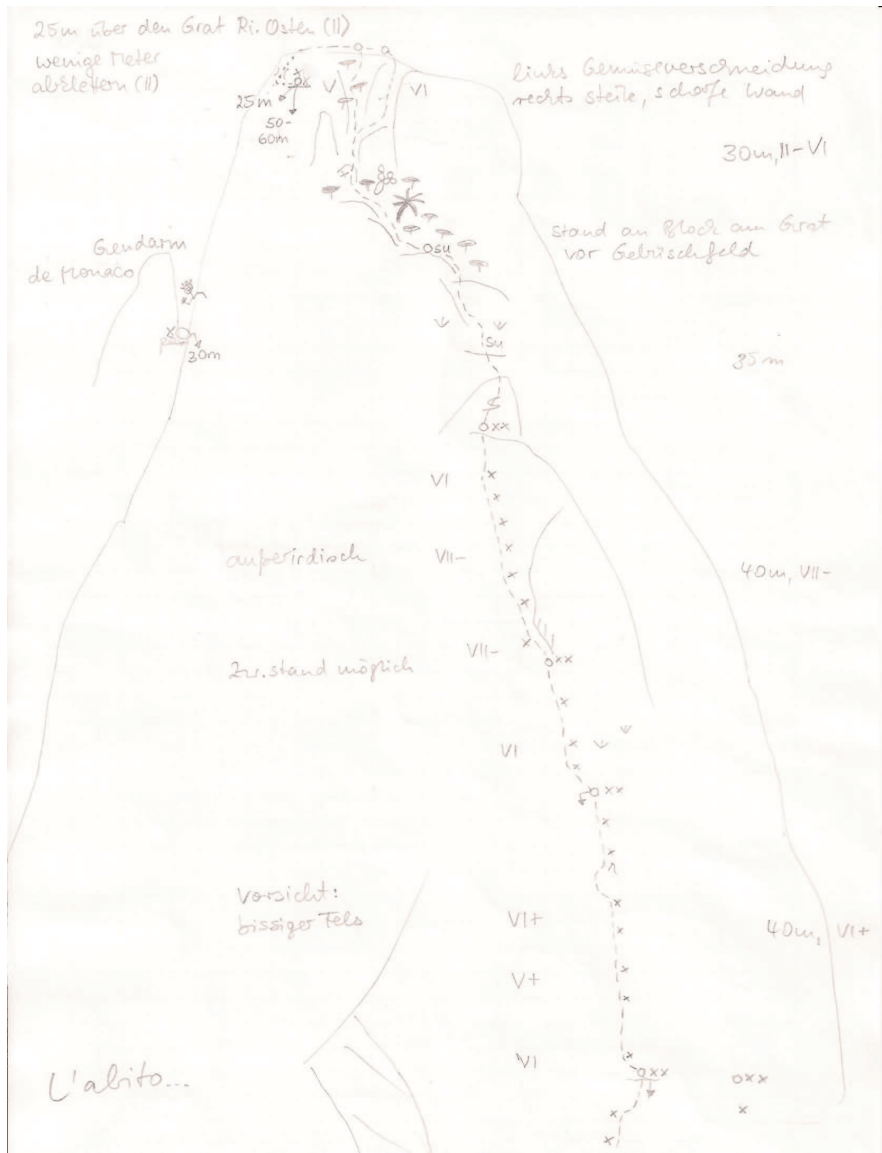 25m über den Grat Ri. Osten (II)
wenige Meter
abklettern (II)
links Gemüseverschneidung
rechts steile, scharfe Wand
25m
50-
60m
V
VI
30m, II-VI
Stand an Block am Grat
vor Gebüschfeld
OSU
Gendarm
de Monaco
30m
SU
35m
OXX
VI
außerirdisch
VII-
40m, VII-
VII-
OXX
Zw.stand möglich
VI
OXX
Vorsicht:
bissiger Fels
VI+
40m, VI+
V+
VI
OXX
OXX
L'abito...